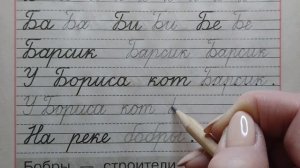 Ба Ба Би Би Бе Бе
Барсик Барсик Барсик
У Бориса кот Барсик.
У Бориса кот
На реке бобры.
Бобры — строители